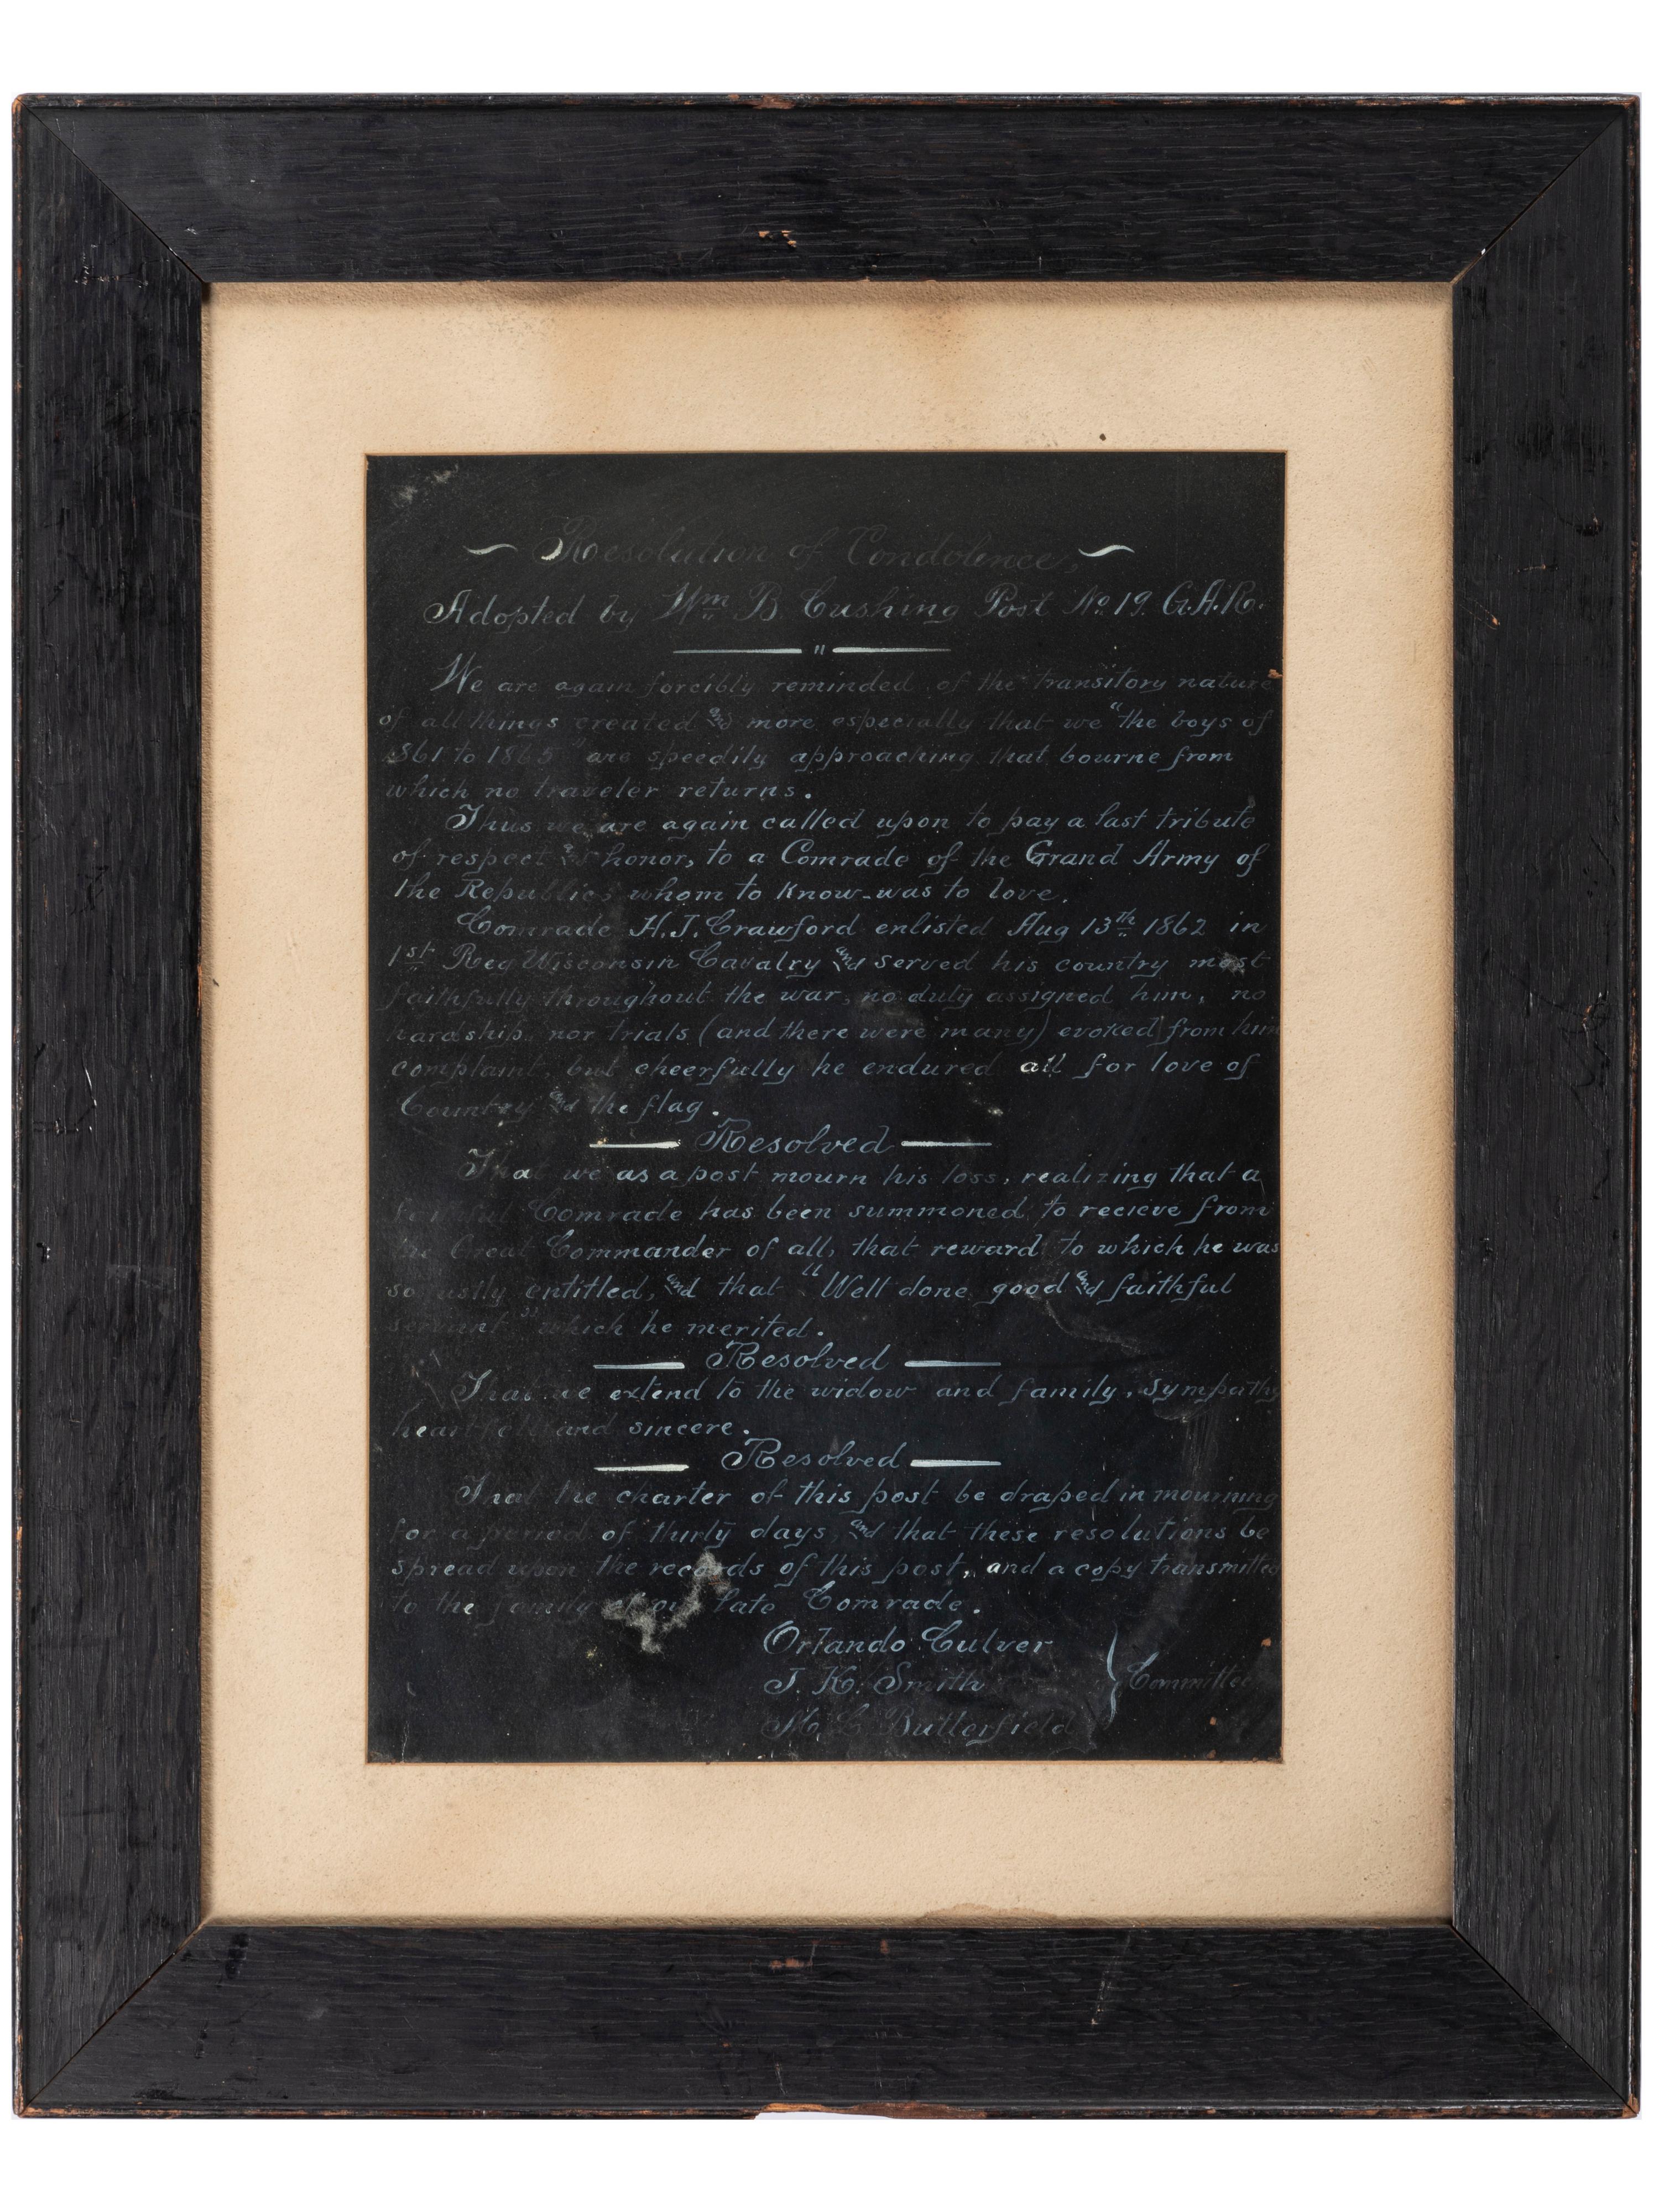 Resolution of Condolence,
Adopted by Wm B. Cushing Post No 19. G.A.R.
We are again forcibly reminded of the transitory nature
of all things created and more especially that we "the boys of
1861 to 1865" are speedily approaching that bourne from
which no traveler returns.
Thus we are again called upon to pay a last tribute
of respect and honor, to a Comrade of the Grand Army of
the Republic; whom to know-was to love.
Comrade H.J. Crawford enlisted Aug 13th 1862 in
1st Reg Wisconsin Cavalry and served his country most
faithfully throughout the war, no duty assigned him, no
hardship nor trials (and there were many) evoked from him
complaint, but cheerfully he endured all for love of
Country and the flag.
Resolved
That we as a post mourn his loss, realizing that a
faithful Comrade has been summoned to recieve from
the Great Commander of all, that reward to which he was
so justly entitled, and that "Well done good and faithful
servant" which he merited.
Resolved
That we extend to the widow and family, sympathy
heartfelt and sincere.
Resolved
That the charter of this post be draped in mourning
for a period of thirty days and that these resolutions be
spread upon the records of this post, and a copy transmitted
to the family of our late Comrade.
Orlando Culver
J. K. Smith
M. L. Butterfield
Committee